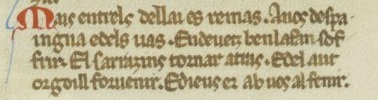 Mais entrels dellai es remas. Auos despa
ingna edels uas. Endeuetz benlafan sof
frir. El sarrazins tornar atras. Edel aut
orgoill foruenir. Edieus er ab uos al fenir.